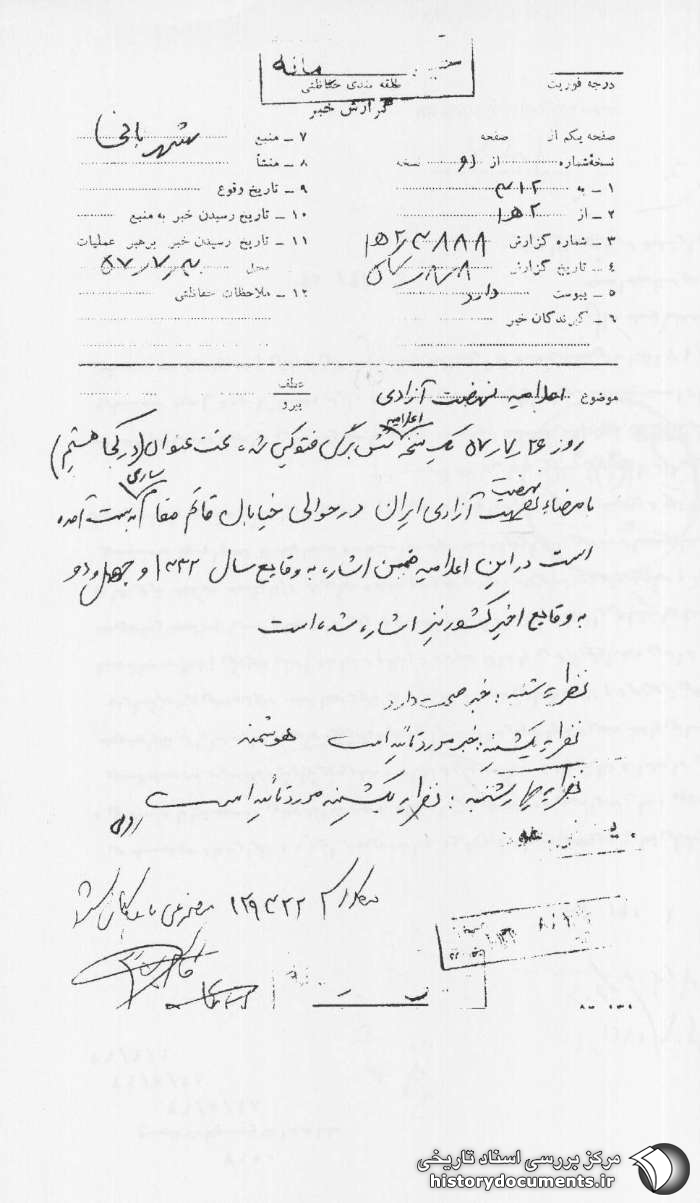 محرمانه
طبقه بندی حفاظتی
گزارش خبر
درجه فوریت
صفحه یکم از صفحه
نسخهٔ شماره از نسخه
۱ ـ به ۳۱۲
۲ ـ از ۲ ه‍ ۱
۳ ـ شماره گزارش ۲/۳۸۸۸ ه‍ ۱
۴ ـ تاریخ گزارش ۵۷/۸/۸
۵ ـ پیوست دارد
۶ ـ گیرندگان خبر
۷ ـ منبع شهربانی
۸ ـ منشأ
۹ ـ تاریخ وقوع
۱۰ ـ تاریخ رسیدن خبر به منبع
۱۱ ـ تاریخ رسیدن خبر برهبر عملیات
محل ۵۷/۷/۳۰
۱۲ ـ ملاحظات حفاظتی
عطف
پیرو
موضوع اعلامیه نهضت آزادی
روز ۵۷/۷/۲۶ یک نسخه اعلامیه شش برگی فتوکپی شده تحت عنوان (در کجا هستیم)
بامضاء نهضت آزادی ایران در حوالی خیابان قائم مقام ساری بدست آمده
است در این اعلامیه ضمن اشاره به وقایع سال ۱۳۳۲ و چهل و دو
به وقایع اخیر کشور نیز اشاره شده است
نظریه شنبه : خبر صحت دارد
نظریه یکشنبه : خبر مورد تأیید است هوشمند
نظریه چهارشنبه : نظریه یکشنبه مورد تأیید است
۱۲۹۳۲۲
مرکز بررسی اسناد تاریخی
historydocuments.ir